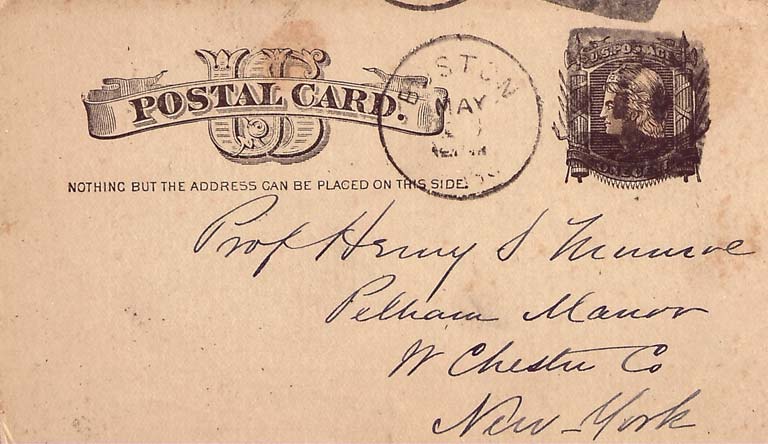 US
POSTAL CARD.
BOSTON
MAY
U.S. POSTAGE
NOTHING BUT THE ADDRESS CAN BE PLACED ON THIS SIDE.
Prof Henry S Munroe
Pelham Manor
W Chester Co
New-York